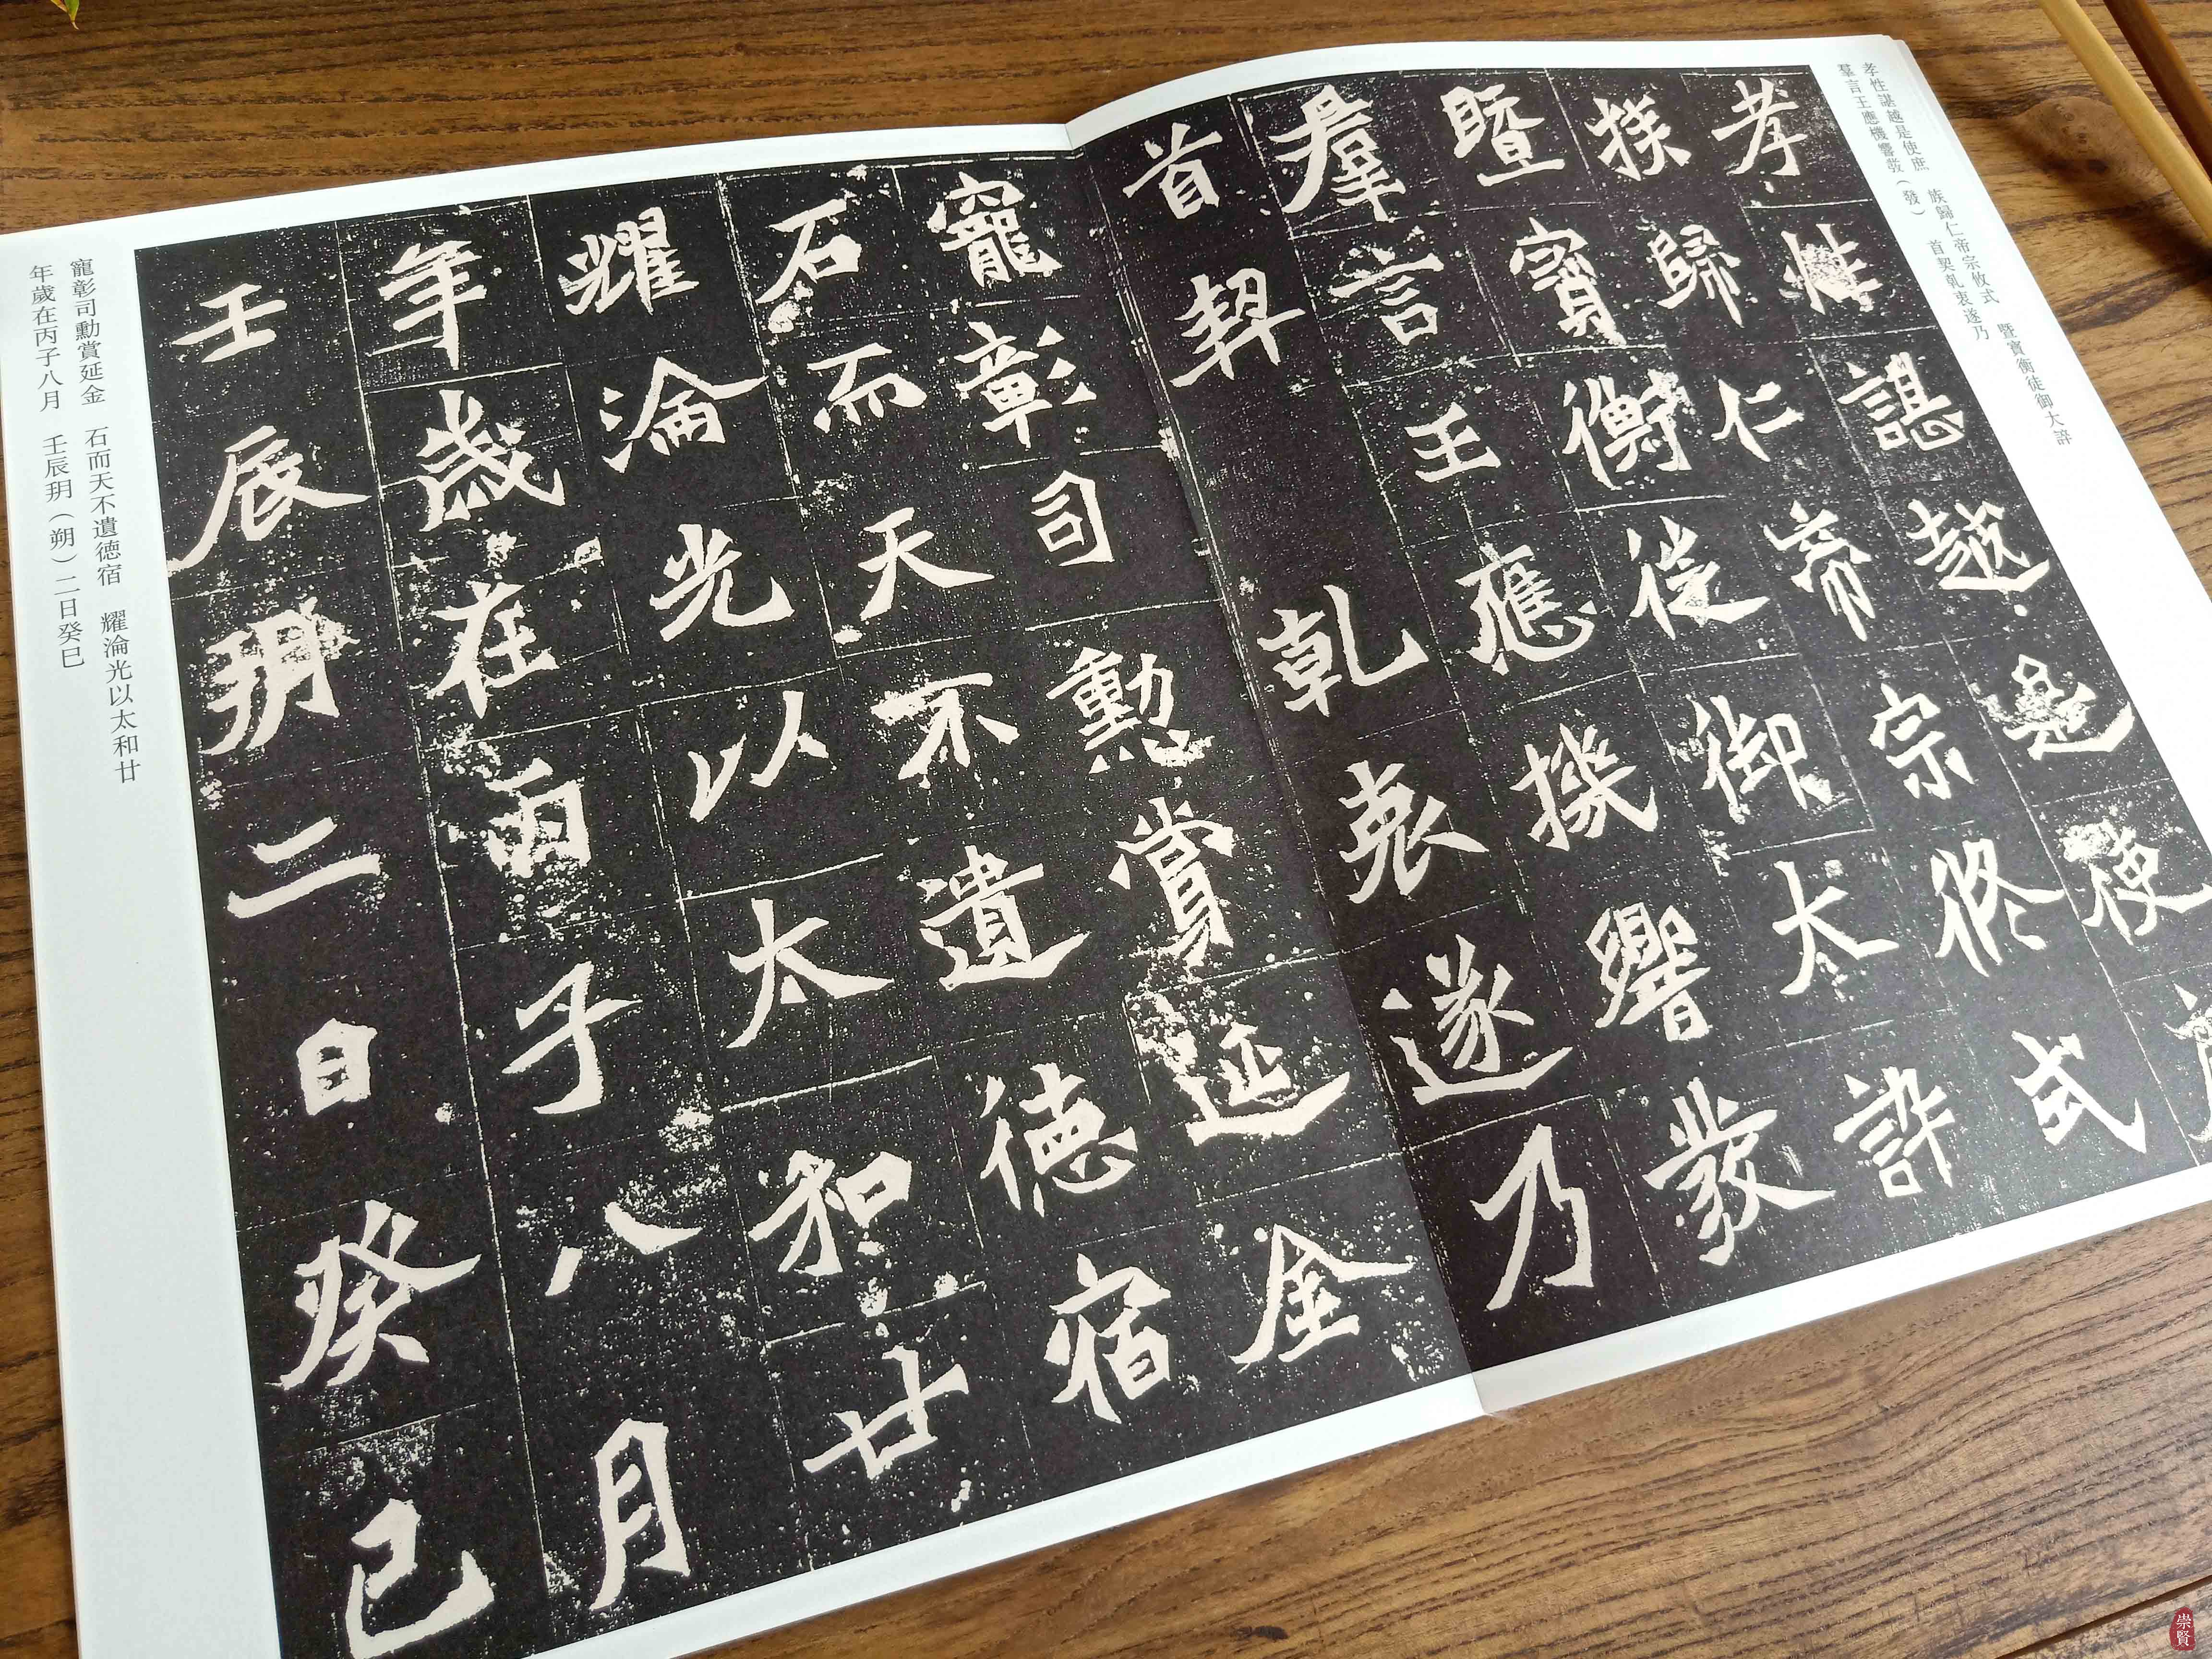 孝性諶越是使庶　族歸仁帝宗攸式　暨賓衡徒御大諱
羣言王應機響敪（發）　首契乹衷遂乃
孝性諶越是使庶
族歸仁帝宗攸式
暨賓衡徒御大諱
羣言王應機響敪
首契乹衷遂乃
寵彰司勳賞延金
石而天不遺徳宿
耀淪光以太和廿
年歲在丙子八月
壬辰玥二日癸巳
寵彰司勳賞延金　石而天不遺徳宿　耀淪光以太和廿
年歲在丙子八月　壬辰玥（朔）二日癸巳
崇賢